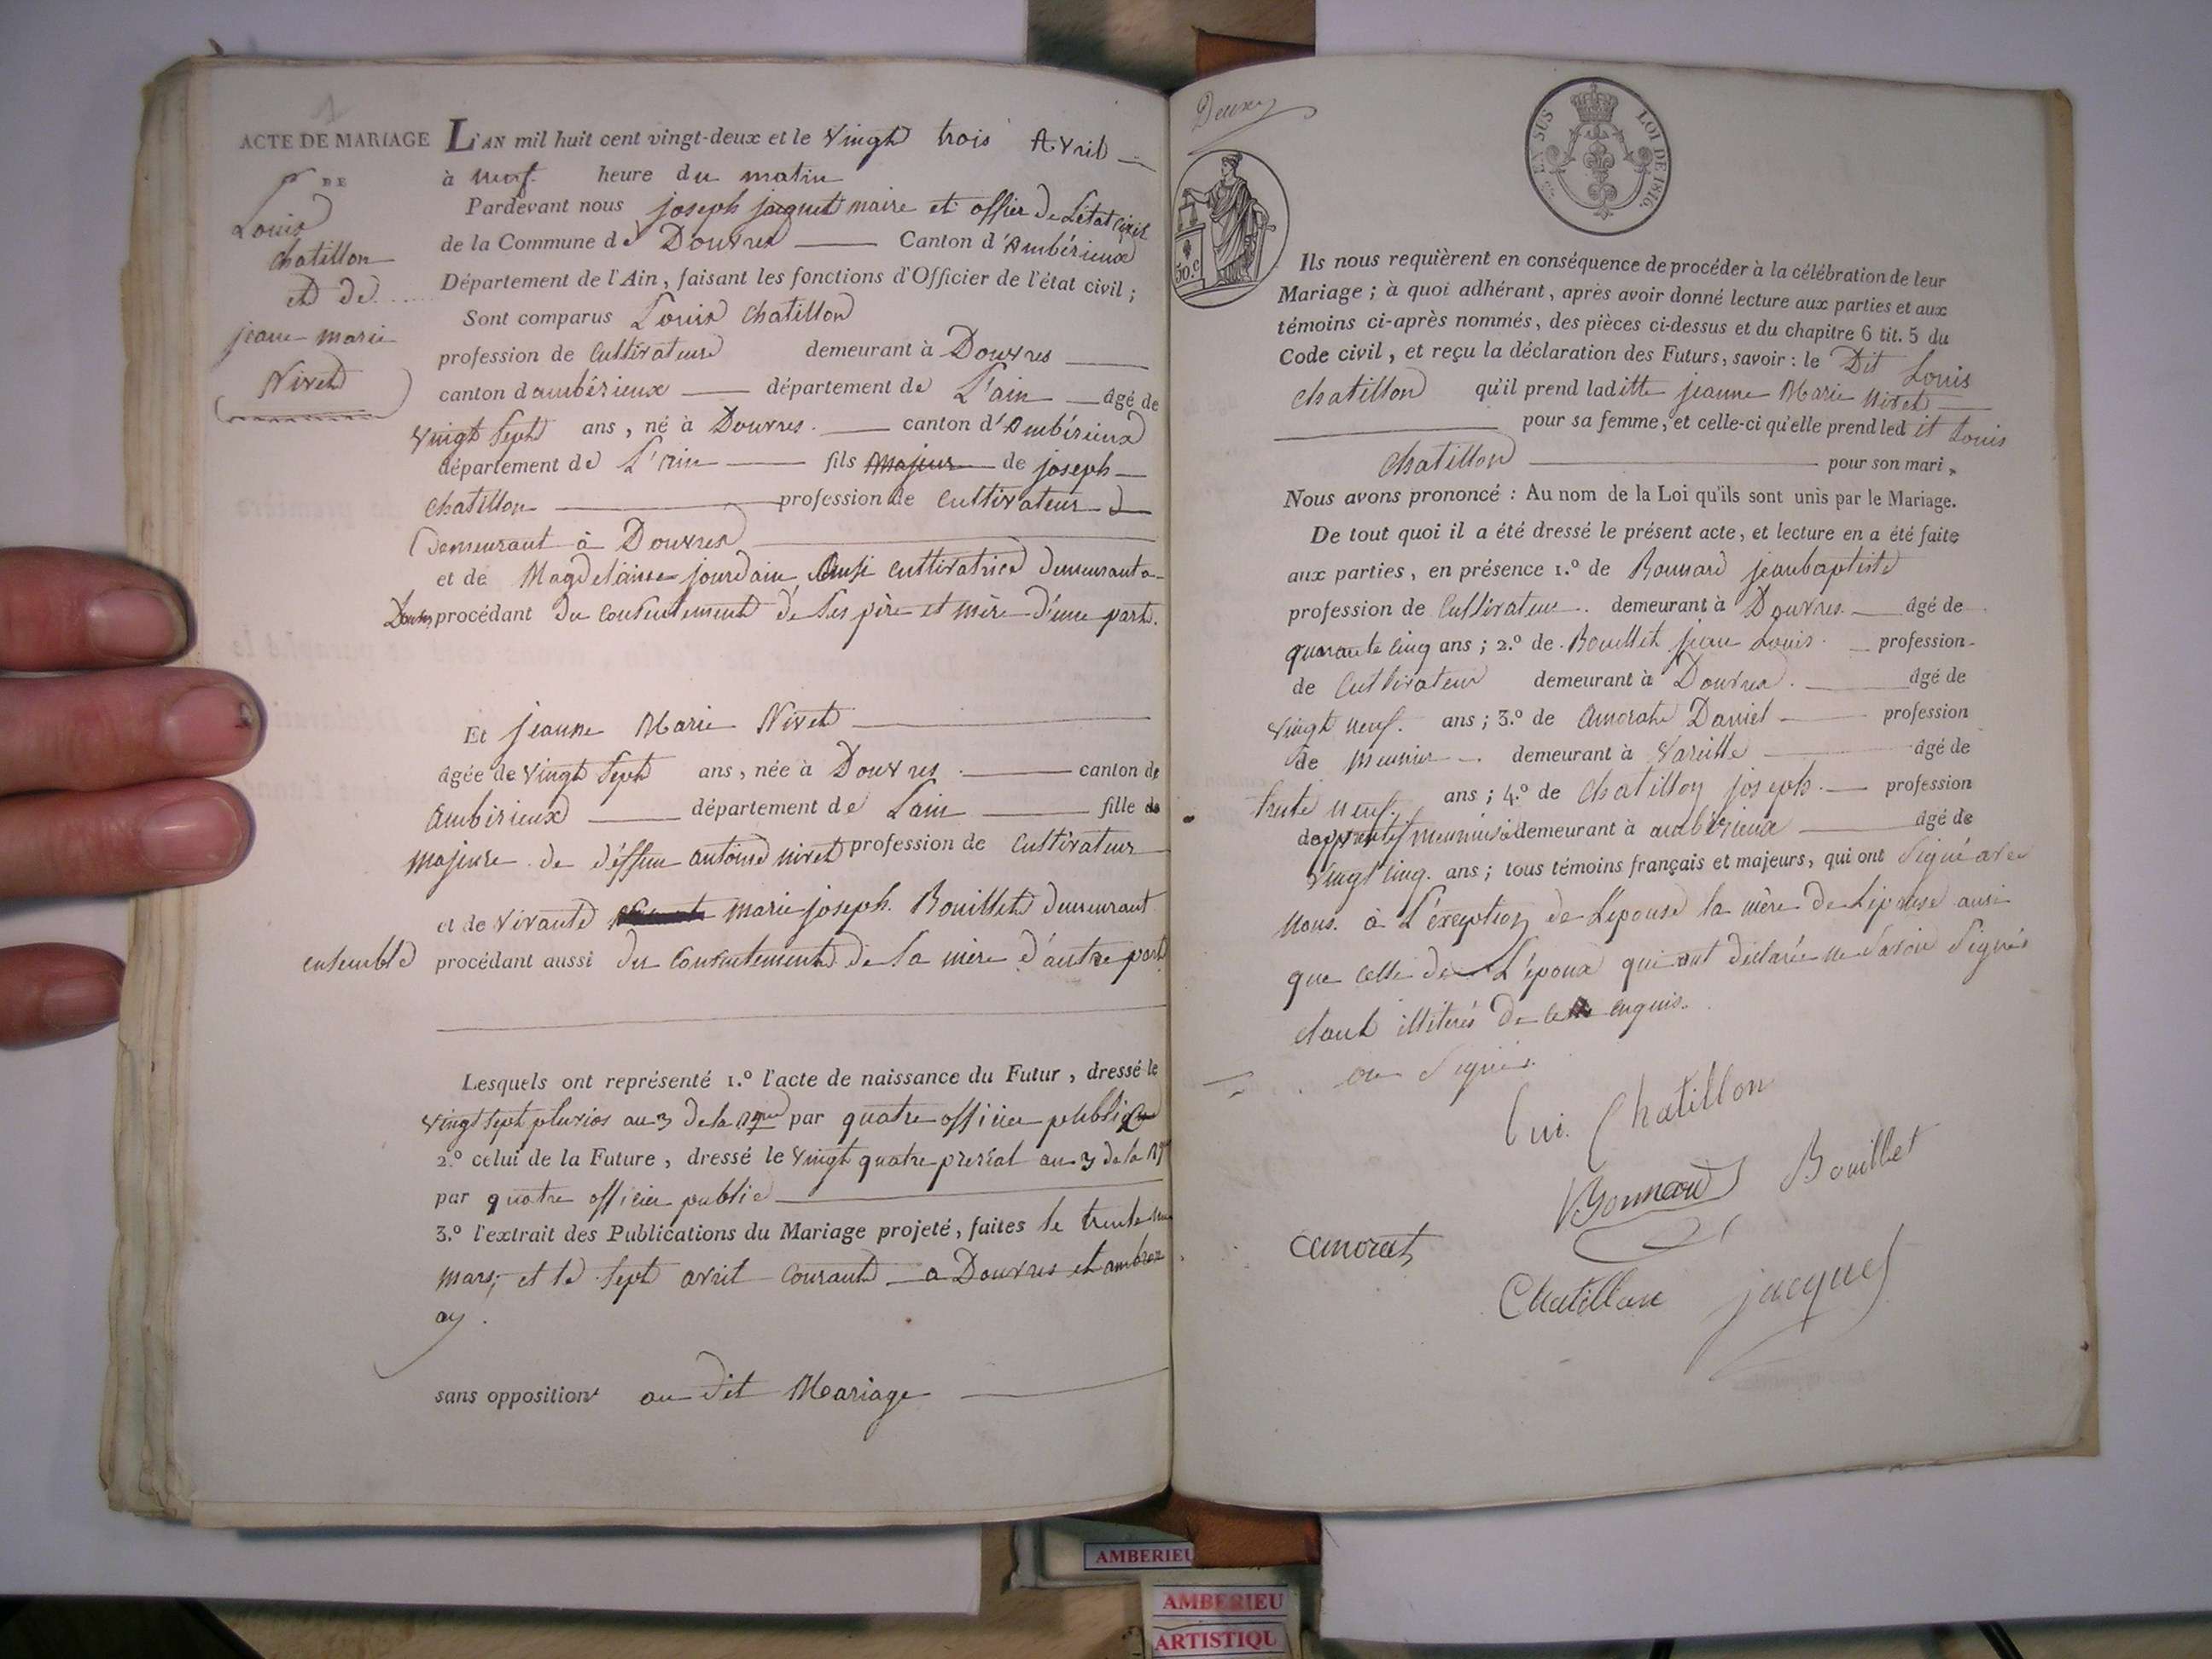 1
ACTE DE MARIAGE
DE
Louis
chatillon
et de
jeane marie
Nivet
L'AN mil huit cent vingt-deux et le vingt trois Avril
à neuf heure du matin
Pardevant nous joseph jacquet maire et offier de L'état civil
de la Commune de Douvres Canton d'Ambérieux
Département de l'Ain, faisant les fonctions d'Officier de l'état civil ;
Sont comparus Louis chatillon
profession de Cultivateur demeurant à Douvres
canton d'ambérieux département de L'ain âgé de
vingt sept ans, né à Douvres. canton d'Ambérieux
département de L'ain fils majeur de joseph
chatillon profession de cultivateur
demeurant à Douvres
et de Magdelaine jourdain Aussi cultivatrice demeurant a
Douvres procédant du consentement de ses père et mère d'une part.
Et jeanne Marie Nivet
âgée de vingt sept ans, née à Douvres canton de
Ambérieux département de Lain fille de
majeure de déffun antoine nivet profession de Cultivateur
et de vivante marie joseph. Bouillet demeurant
ensemble procédant aussi du consentement de sa mère d'autre part
Lesquels ont représenté 1.º l'acte de naissance du Futur, dressé le
vingt sept pluvios an 3 de la par quatre officier public
2.º celui de la Future, dressé le vingt quatre prerial an 3 de la
par quatre officier public
3.º l'extrait des Publications du Mariage projeté, faites le trente un
mars, et le sept avril courant a Douvres et ambron
ay.
sans opposition au dit Mariage
Deux
EN SUS LOI DE 1816.
50.c
Ils nous requièrent en conséquence de procéder à la célébration de leur
Mariage ; à quoi adhérant, après avoir donné lecture aux parties et aux
témoins ci-après nommés, des pièces ci-dessus et du chapitre 6 tit. 5 du
Code civil, et reçu la déclaration des Futurs, savoir : le Dit Louis
chatillon qu'il prend laditte jeanne Marie Nivet
pour sa femme, et celle-ci qu'elle prend ledit Louis
chatillon pour son mari,
Nous avons prononcé : Au nom de la Loi qu'ils sont unis par le Mariage.
De tout quoi il a été dressé le présent acte, et lecture en a été faite
aux parties, en présence 1.º de Bonnard jeanbaptiste
profession de Cultivateur demeurant à Douvres âgé de
quarante cinq ans ; 2.º de Bouillet jean Louis profession
de Cultivateur demeurant à Douvres. âgé de
vingt neuf. ans ; 3.º de Amorat Daniel profession
de meunier demeurant à Vareille âgé de
trente neuf. ans ; 4.º de Chatillon joseph. profession
de meunier demeurant à ambérieux âgé de
vingt cinq. ans ; tous témoins français et majeurs, qui ont signé avec
Nous. à L'exeption de L'epouse la mère de L'epouse ausi
que celle de L'époux qui ont déclarée ne savoir signés
étant illiterés de ce enquis.
on signés.
Lui Chatillon
Bonnard Bouillet
amorat
Chatillon jacquet
AMBERIEU
AMBERIEU
ARTISTIQU